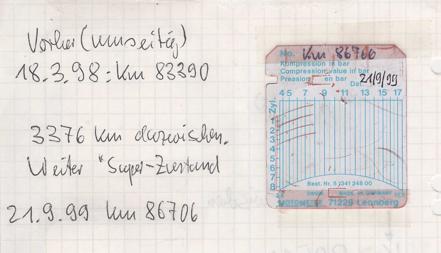 Vorher (umseitig)
18.3.98: Km 83390
3376 km dazwischen.
Weiter "Super-Zustand
21.9.99 km 86706
No. Km 86766
Kompression in bar
Compression value in bar
Pression en bar
Dat. 21/9/99
4 5 7 9 11 13 15 17
Zyl.
1
2
3
4
5
6
7
8
Best. Nr. 5 1341 248 00
MOTOMETER, 71229 Leonberg